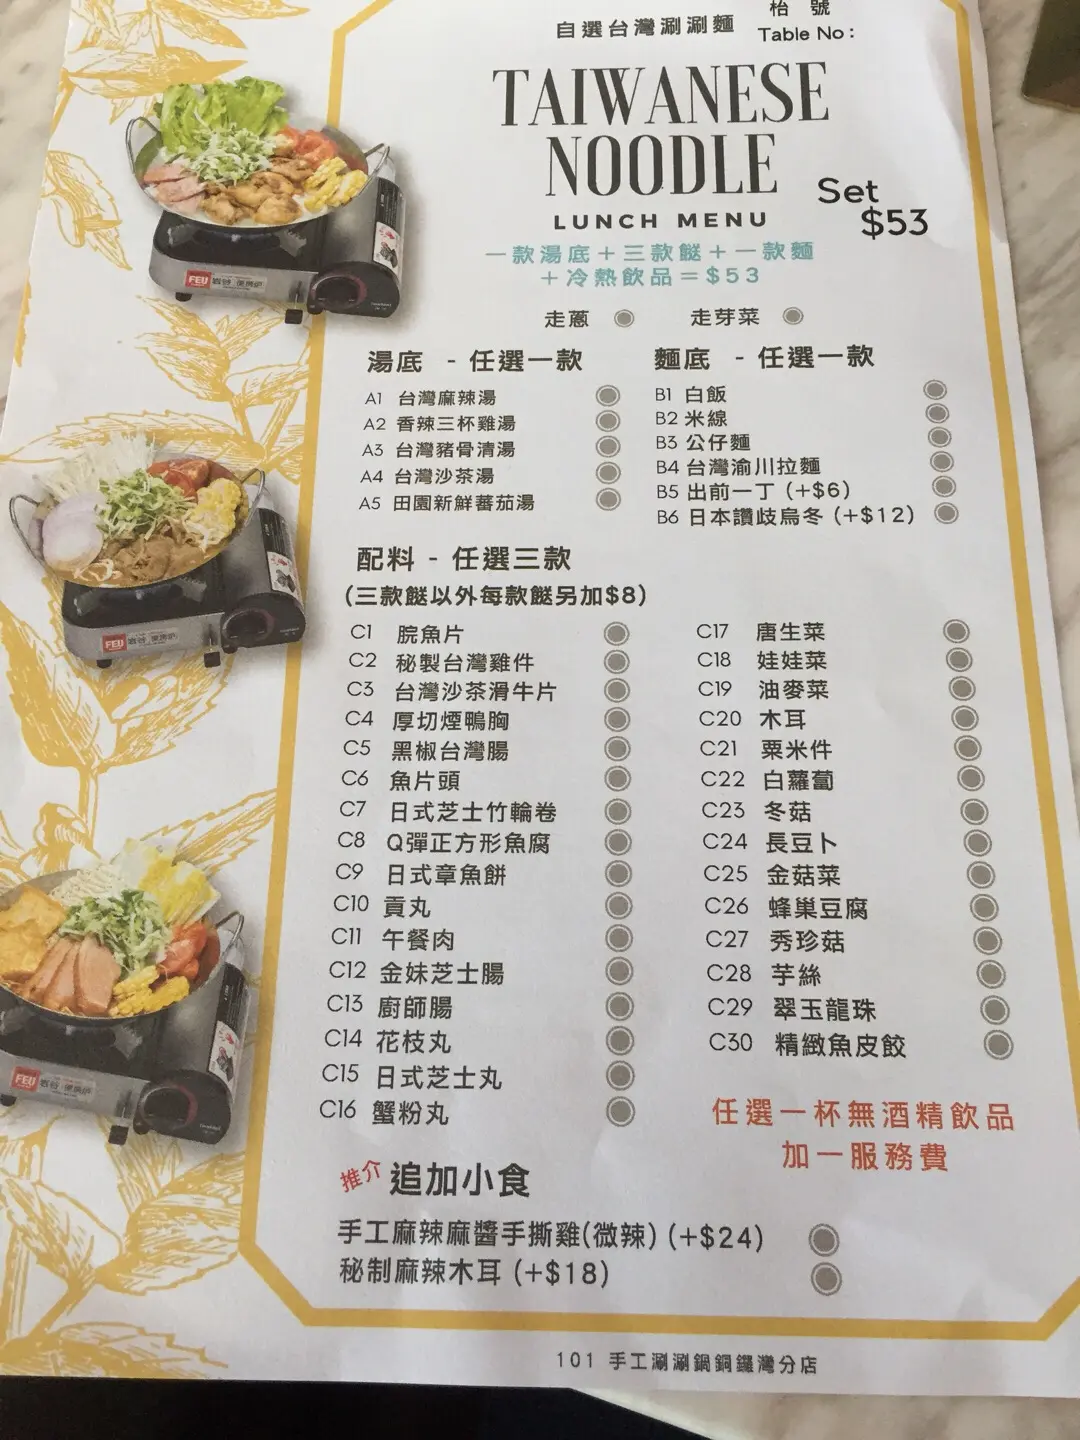 自選台灣涮涮麵
枱號
Table No :
TAIWANESE
NOODLE
LUNCH MENU
Set
$53
一款湯底＋三款餸＋一款麵
＋冷熱飲品＝$53
走蔥
走芽菜
湯底 - 任選一款
A1 台灣麻辣湯
A2 香辣三杯雞湯
A3 台灣豬骨清湯
A4 台灣沙茶湯
A5 田園新鮮蕃茄湯
麵底 - 任選一款
B1 白飯
B2 米線
B3 公仔麵
B4 台灣渝川拉麵
B5 出前一丁 (+$6)
B6 日本讚歧烏冬 (+$12)
配料 - 任選三款
(三款餸以外每款餸另加$8)
C1 脘魚片
C2 秘製台灣雞件
C3 台灣沙茶滑牛片
C4 厚切煙鴨胸
C5 黑椒台灣腸
C6 魚片頭
C7 日式芝士竹輪卷
C8 Q彈正方形魚腐
C9 日式章魚餅
C10 貢丸
C11 午餐肉
C12 金妹芝士腸
C13 廚師腸
C14 花枝丸
C15 日式芝士丸
C16 蟹粉丸
C17 唐生菜
C18 娃娃菜
C19 油麥菜
C20 木耳
C21 粟米件
C22 白蘿蔔
C23 冬菇
C24 長豆卜
C25 金菇菜
C26 蜂巢豆腐
C27 秀珍菇
C28 芋絲
C29 翠玉龍珠
C30 精緻魚皮餃
任選一杯無酒精飲品
加一服務費
推介 追加小食
手工麻辣麻醬手撕雞(微辣) (+$24)
秘制麻辣木耳 (+$18)
101 手工涮涮鍋銅鑼灣分店
FEU
FEU
FEU